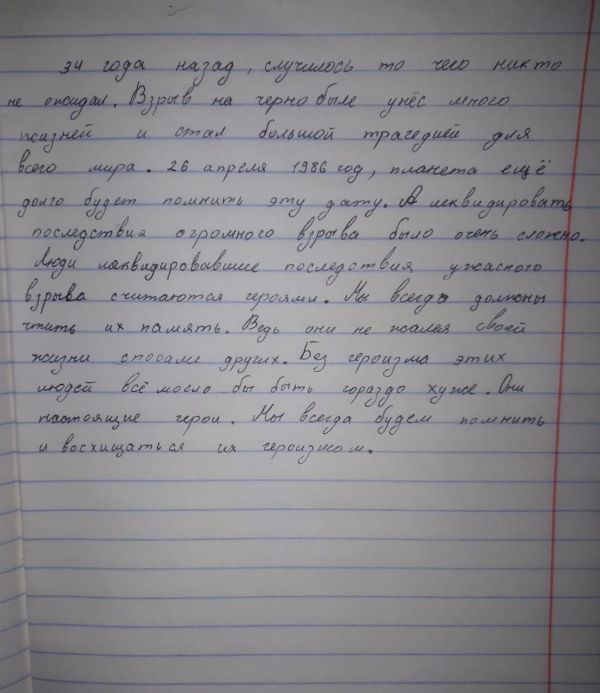 34 года назад, случилось то чего никто
не ожидал. Взрыв на чернобыле унёс много
жизней и стал большой трагедией для
всего мира. 26 апреля 1986 год, планета ещё
долго будет помнить эту дату. А леквидировать
последствия огромного взрыва было очень сложно.
Люди леквидировавшие последствия ужасного
взрыва считаются героями. Мы всегда должны
чтить их память. Ведь они не жалея своей
жизни спосали других. Без героизма этих
людей всё могло бы быть гораздо хуже. Они
настоящие герои. Мы всегда будем помнить
и восхищаться их героизмом.